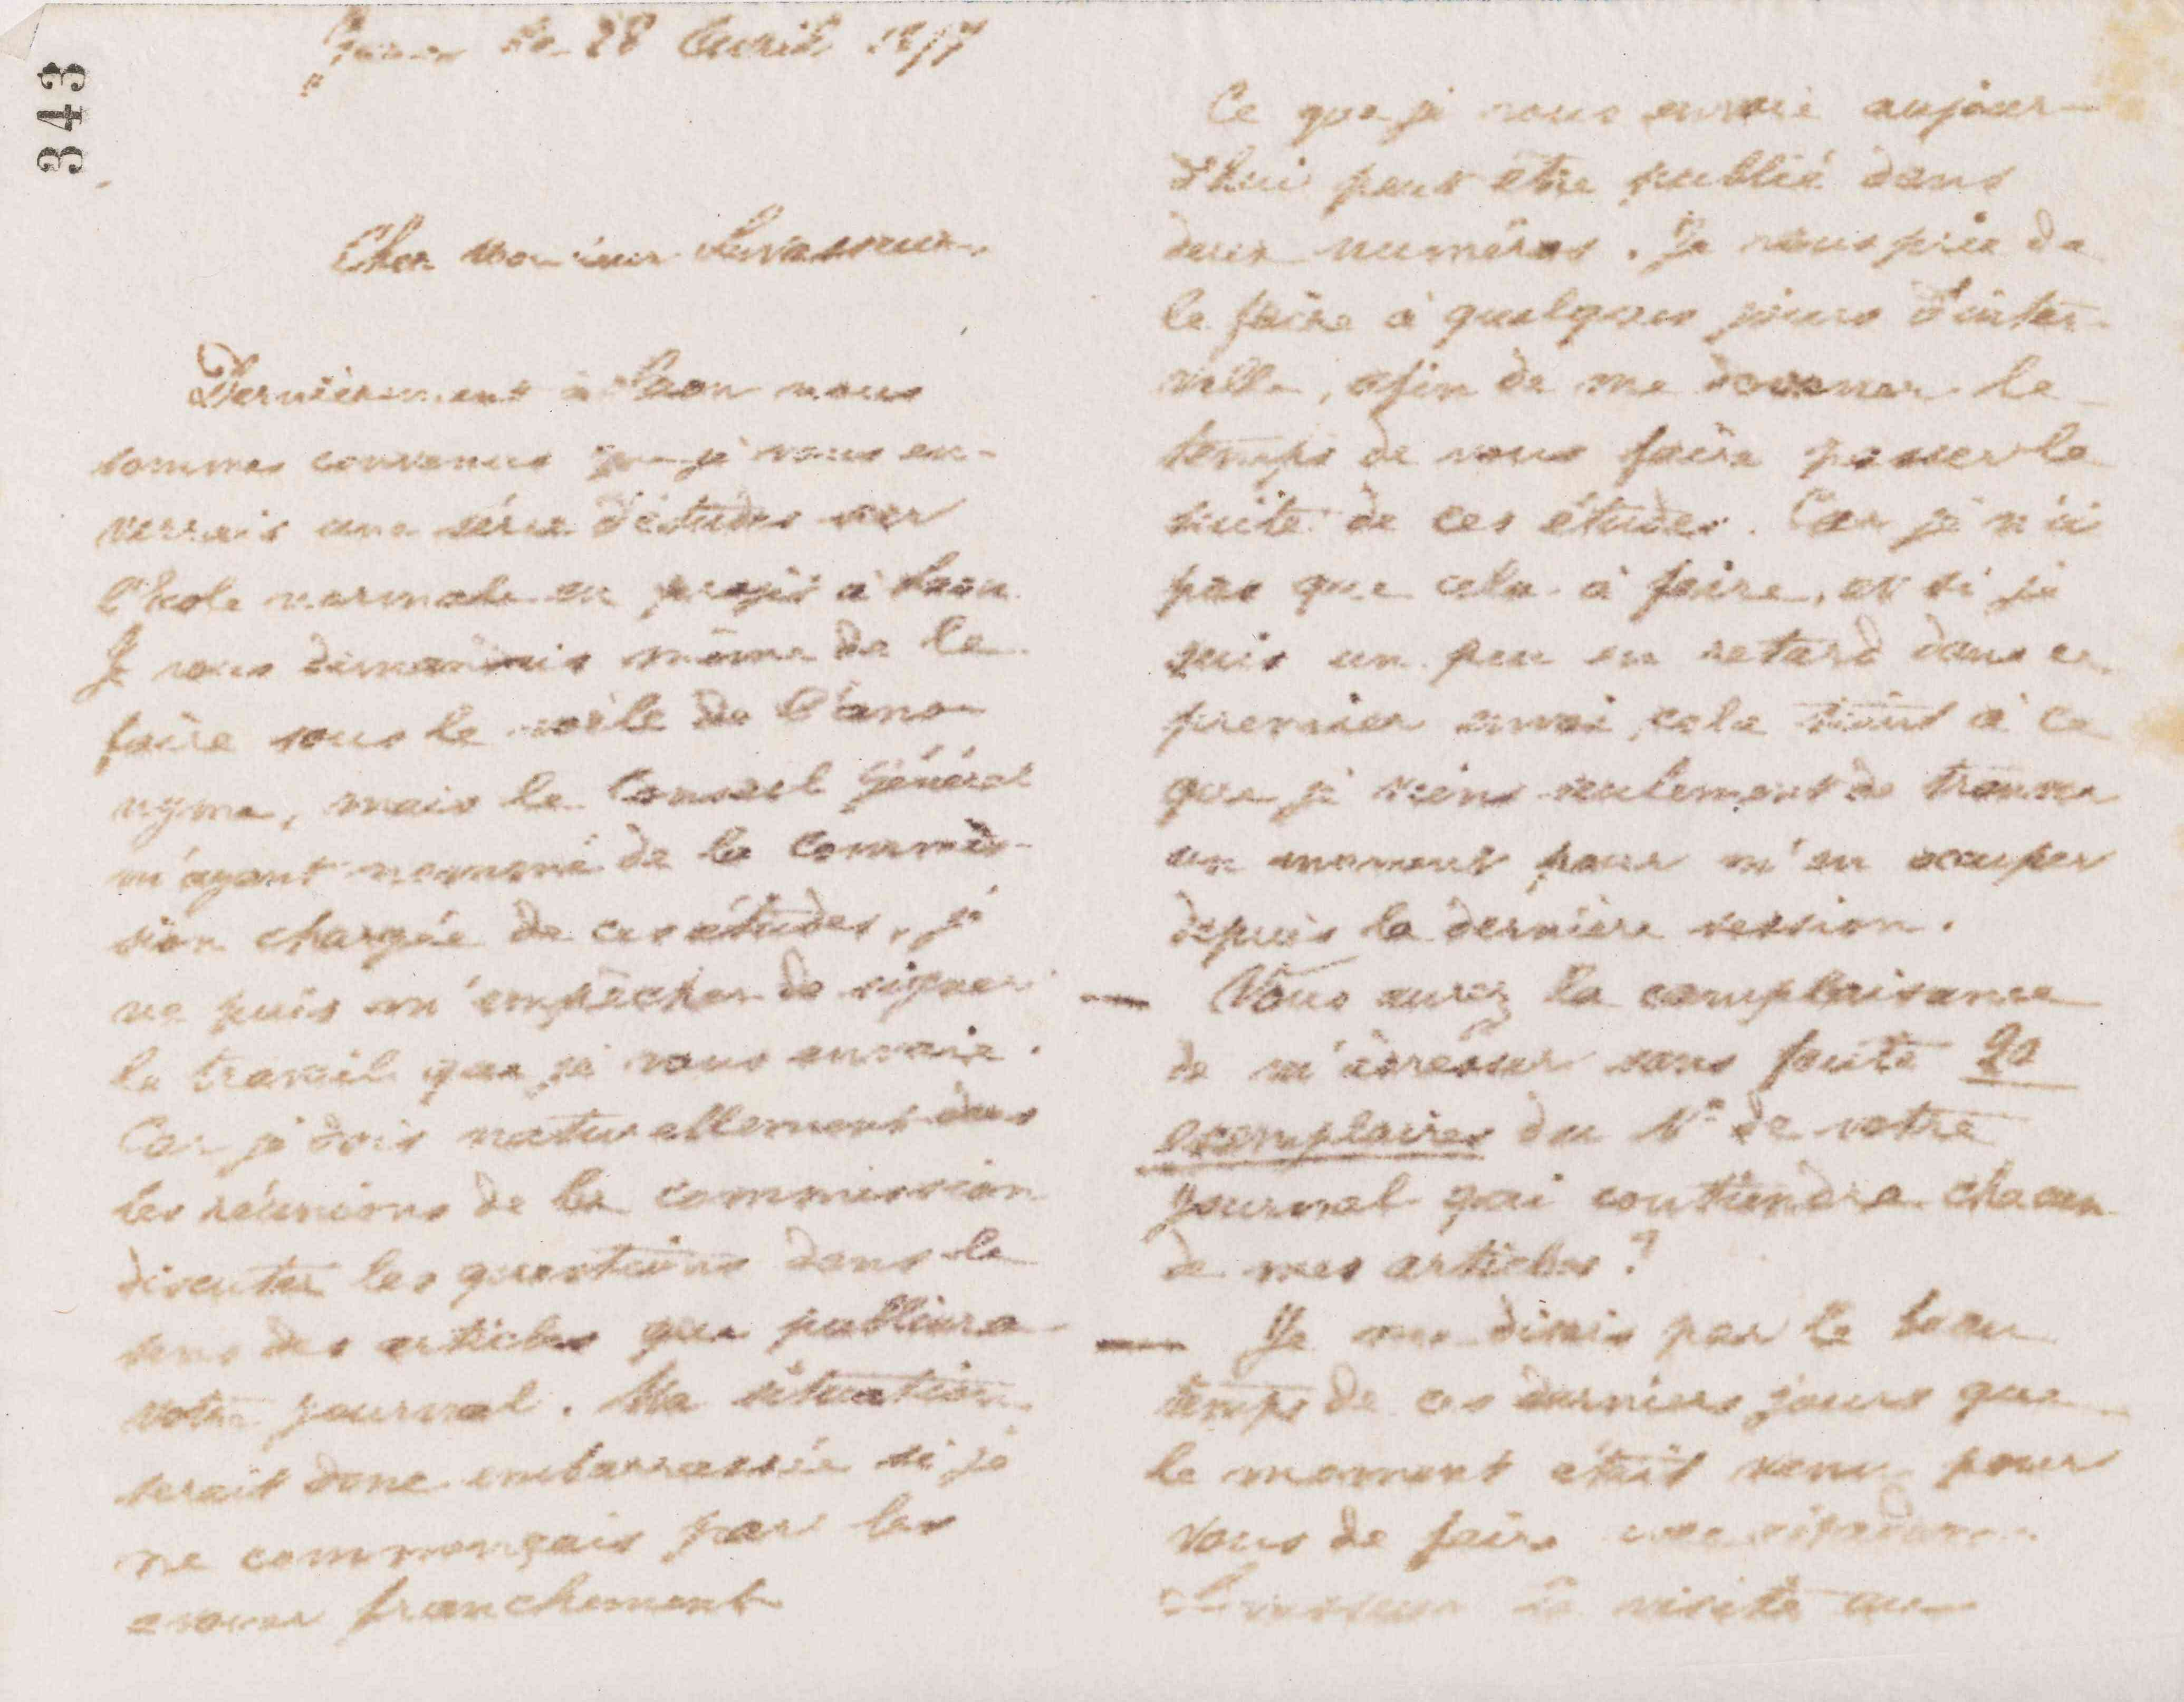 343
le 28 Avril 1877
Cher Monsieur Levasseur,
Dernièrement à Laon nous
sommes convenus que je vous en-
verrais une série d'études sur
l'Ecole normale en projet à Laon.
Je vous demandais même de le
faire sous le voile de l'ano-
nyme, mais le Conseil Général
m'ayant nommé de la commis-
sion chargée de ces études, je
ne puis m'empêcher de signer
le travail que je vous envoie.
Car je dois naturellement dans
les réunions de la commission
discuter les questions dans le
sens des articles que publiera
votre journal. Ma situation
serait donc embarrassée si je
ne commençais par les
avouer franchement
Ce que je vous envoie aujour-
d'hui peut être publié dans
deux numéros. Je vous prie de
le faire à quelques jours d'inter-
valle, afin de me donner le
temps de vous faire passer la
suite de ces études. Car je n'ai
pas que cela à faire, et si je
suis un peu en retard dans ce
premier envoi, cela tient à ce
que je viens seulement de trouver
un moment pour m'en occuper
depuis la dernière session.
— Vous aurez la complaisance
de m'adresser sans faute 20
exemplaires du N° de votre
journal qui contiendra chacun
de mes articles?
— Je me disais par le beau
temps de ces derniers jours que
le moment était venu pour
vous de faire
Levasseur la visite au